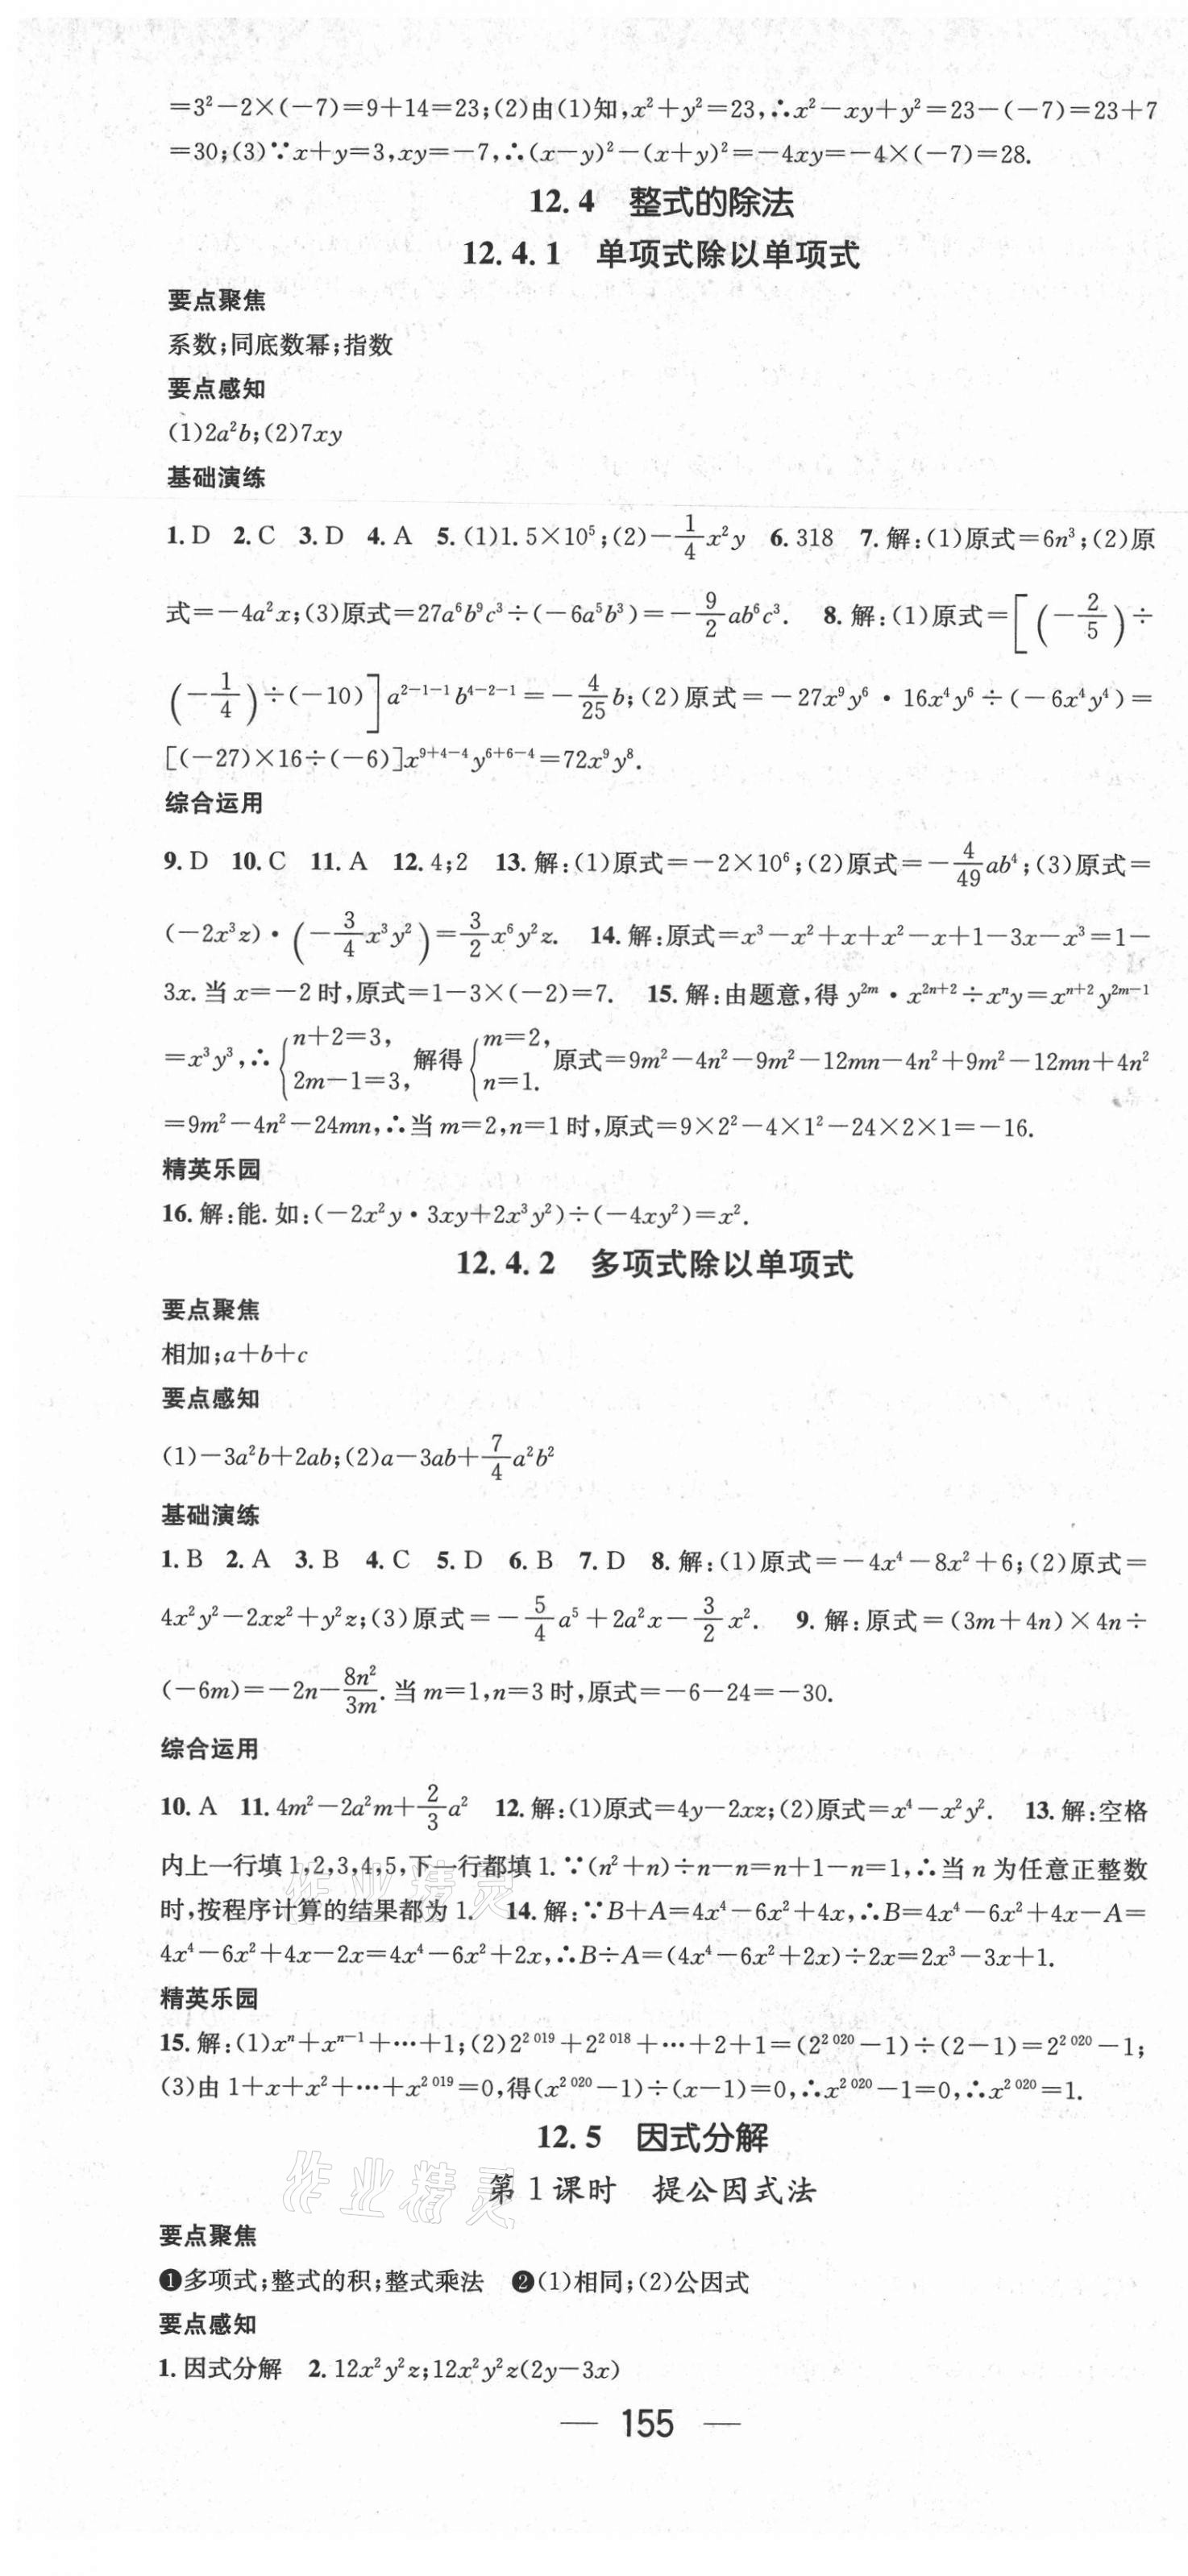 =3²-2×(-7)=9+14=23;(2)由(1)知,x²+y²=23,∴x²-xy+y²=23-(-7)=23+7
=30;(3)∵x+y=3,xy=-7,∴(x-y)²-(x+y)²=-4xy=-4×(-7)=28.
12.4 整式的除法
12.4.1 单项式除以单项式
要点聚焦
系数;同底数幂;指数
要点感知
(1)2a²b;(2)7xy
基础演练
1.D 2.C 3.D 4.A 5.(1)1.5×10⁵;(2)-1/4x²y 6.318 7.解:(1)原式=6n³;(2)原
式=-4a²x;(3)原式=27a⁶b⁹c³÷(-6a⁵b³)=-9/2ab⁶c³. 8.解:(1)原式=[(-2/5)÷
(-1/4)÷(-10)]a²⁻¹⁻¹b⁴⁻²⁻¹=-4/25b;(2)原式=-27x⁹y⁶·16x⁴y⁶÷(-6x⁴y⁴)=
[(-27)×16÷(-6)]x⁹⁺⁴⁻⁴y⁶⁺⁶⁻⁴=72x⁹y⁸.
综合运用
9.D 10.C 11.A 12.4;2 13.解:(1)原式=-2×10⁶;(2)原式=-4/49ab⁴;(3)原式=
(-2x³z)·(-3/4x³y²)=3/2x⁶y²z. 14.解:原式=x³-x²+x+x²-x+1-3x-x³=1-
3x.当x=-2时,原式=1-3×(-2)=7. 15.解:由题意,得y²ᵐ·x²ⁿ⁺²÷xⁿy=xⁿ⁺²y²ᵐ⁻¹
=x³y³,∴{n+2=3, 2m-1=3, 解得{m=2, n=1. 原式=9m²-4n²-9m²-12mn-4n²+9m²-12mn+4n²
=9m²-4n²-24mn,∴当m=2,n=1时,原式=9×2²-4×1²-24×2×1=-16.
精英乐园
16.解:能.如:(-2x²y·3xy+2x³y²)÷(-4xy²)=x².
12.4.2 多项式除以单项式
要点聚焦
相加;a+b+c
要点感知
(1)-3a²b+2ab;(2)a-3ab+7/4a²b²
基础演练
1.B 2.A 3.B 4.C 5.D 6.B 7.D 8.解:(1)原式=-4x⁴-8x²+6;(2)原式=
4x²y²-2xz²+y²z;(3)原式=-5/4a⁵+2a²x-3/2x². 9.解:原式=(3m+4n)×4n÷
(-6m)=-2n-8n²/3m.当m=1,n=3时,原式=-6-24=-30.
综合运用
10.A 11.4m²-2a²m+2/3a² 12.解:(1)原式=4y-2xz;(2)原式=x⁴-x²y². 13.解:空格
内上一行填1,2,3,4,5,下一行都填1.∵(n²+n)÷n-n=n+1-n=1,∴当n为任意正整数
时,按程序计算的结果都为1. 14.解:∵B+A=4x⁴-6x²+4x,∴B=4x⁴-6x²+4x-A=
4x⁴-6x²+4x-2x=4x⁴-6x²+2x,∴B÷A=(4x⁴-6x²+2x)÷2x=2x³-3x+1.
精英乐园
15.解:(1)xⁿ+xⁿ⁻¹+…+1;(2)2²⁰¹⁹+2²⁰¹⁸+…+2+1=(2²⁰²⁰-1)÷(2-1)=2²⁰²⁰-1;
(3)由1+x+x²+…+x²⁰¹⁹=0,得(x²⁰²⁰-1)÷(x-1)=0,∴x²⁰²⁰-1=0,∴x²⁰²⁰=1.
12.5 因式分解
第1课时 提公因式法
作业精灵
要点聚焦
❶多项式;整式的积;整式乘法 ❷(1)相同;(2)公因式
要点感知
1.因式分解 2.12x²y²z;12x²y²z(2y-3x)
— 155 —